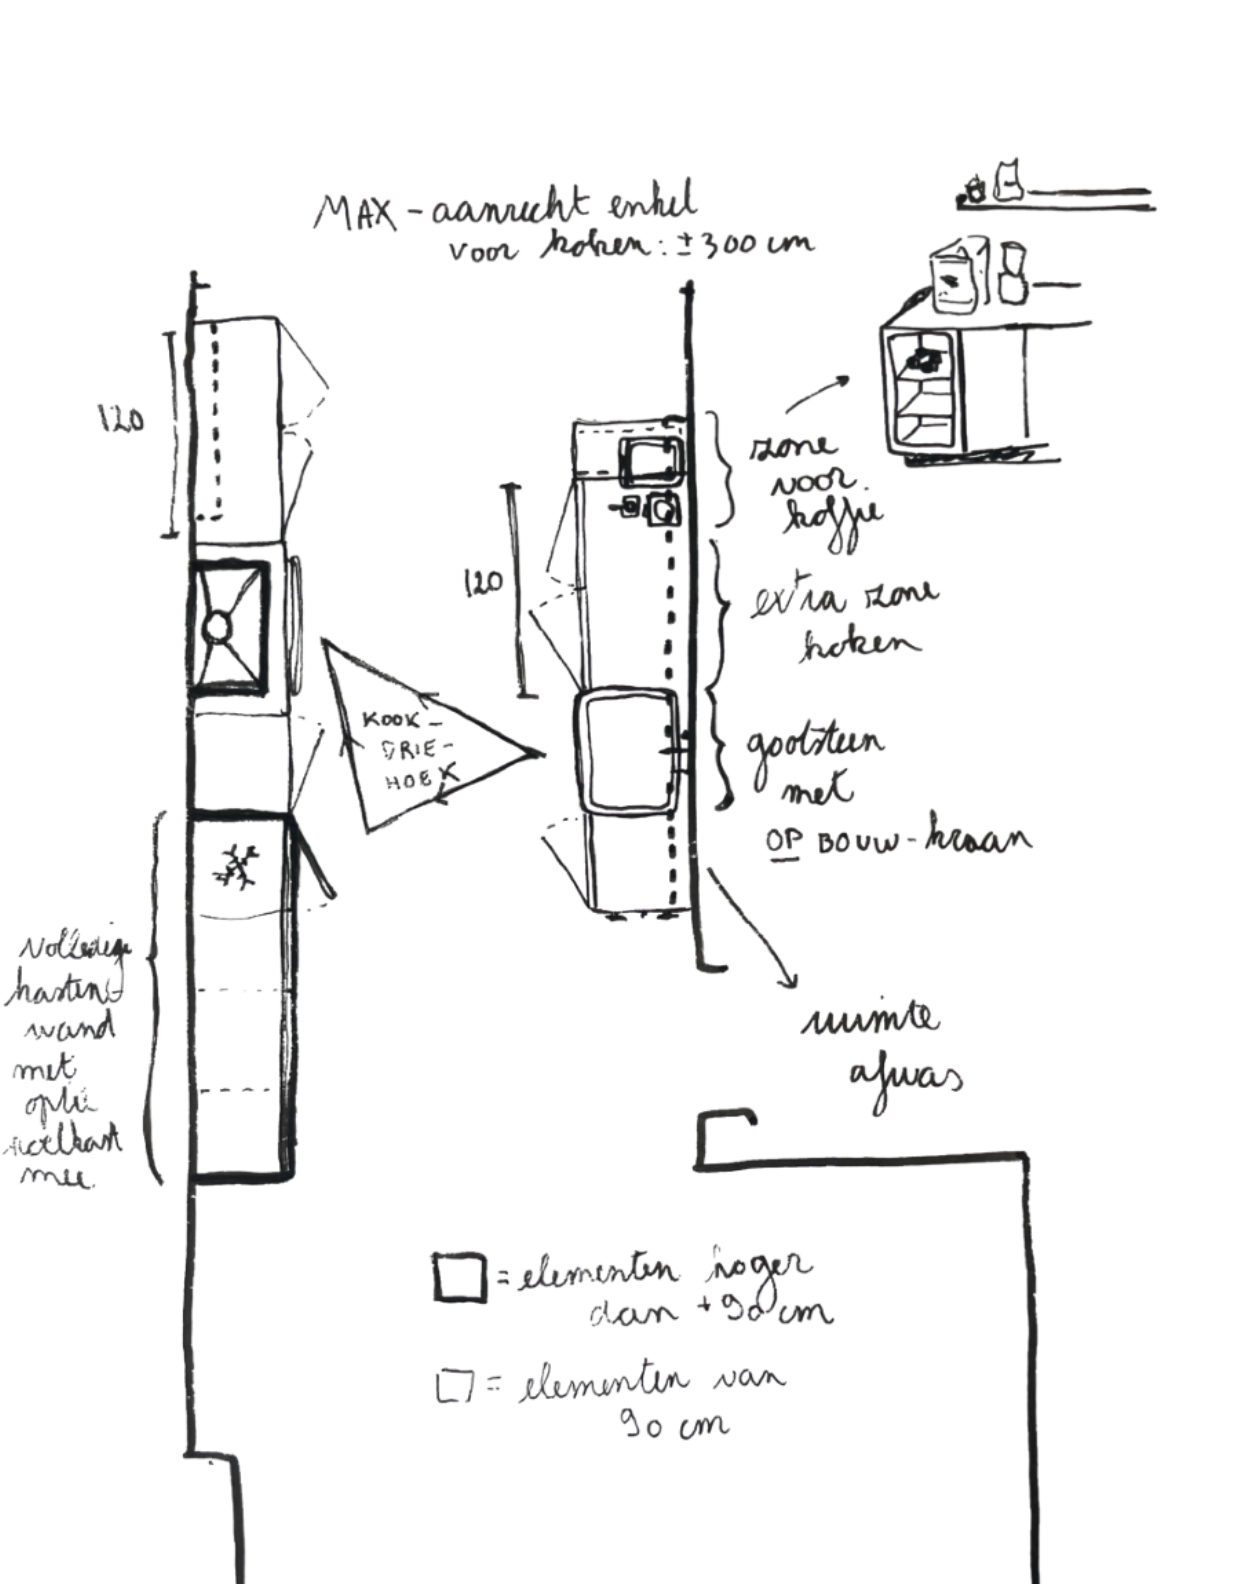 MAX-aanrecht enkel
voor koken: ±300 cm
120
zone
voor
koffie
120
extra zone
koken
KOOK-
DRIE-
HOEK
gootsteen
met
OP BOUW-kraan
Volledige
kasten
wand
met
optie
koelkast
mee.
ruimte
afwas
= elementen hoger
dan +90 cm
= elementen van
90 cm